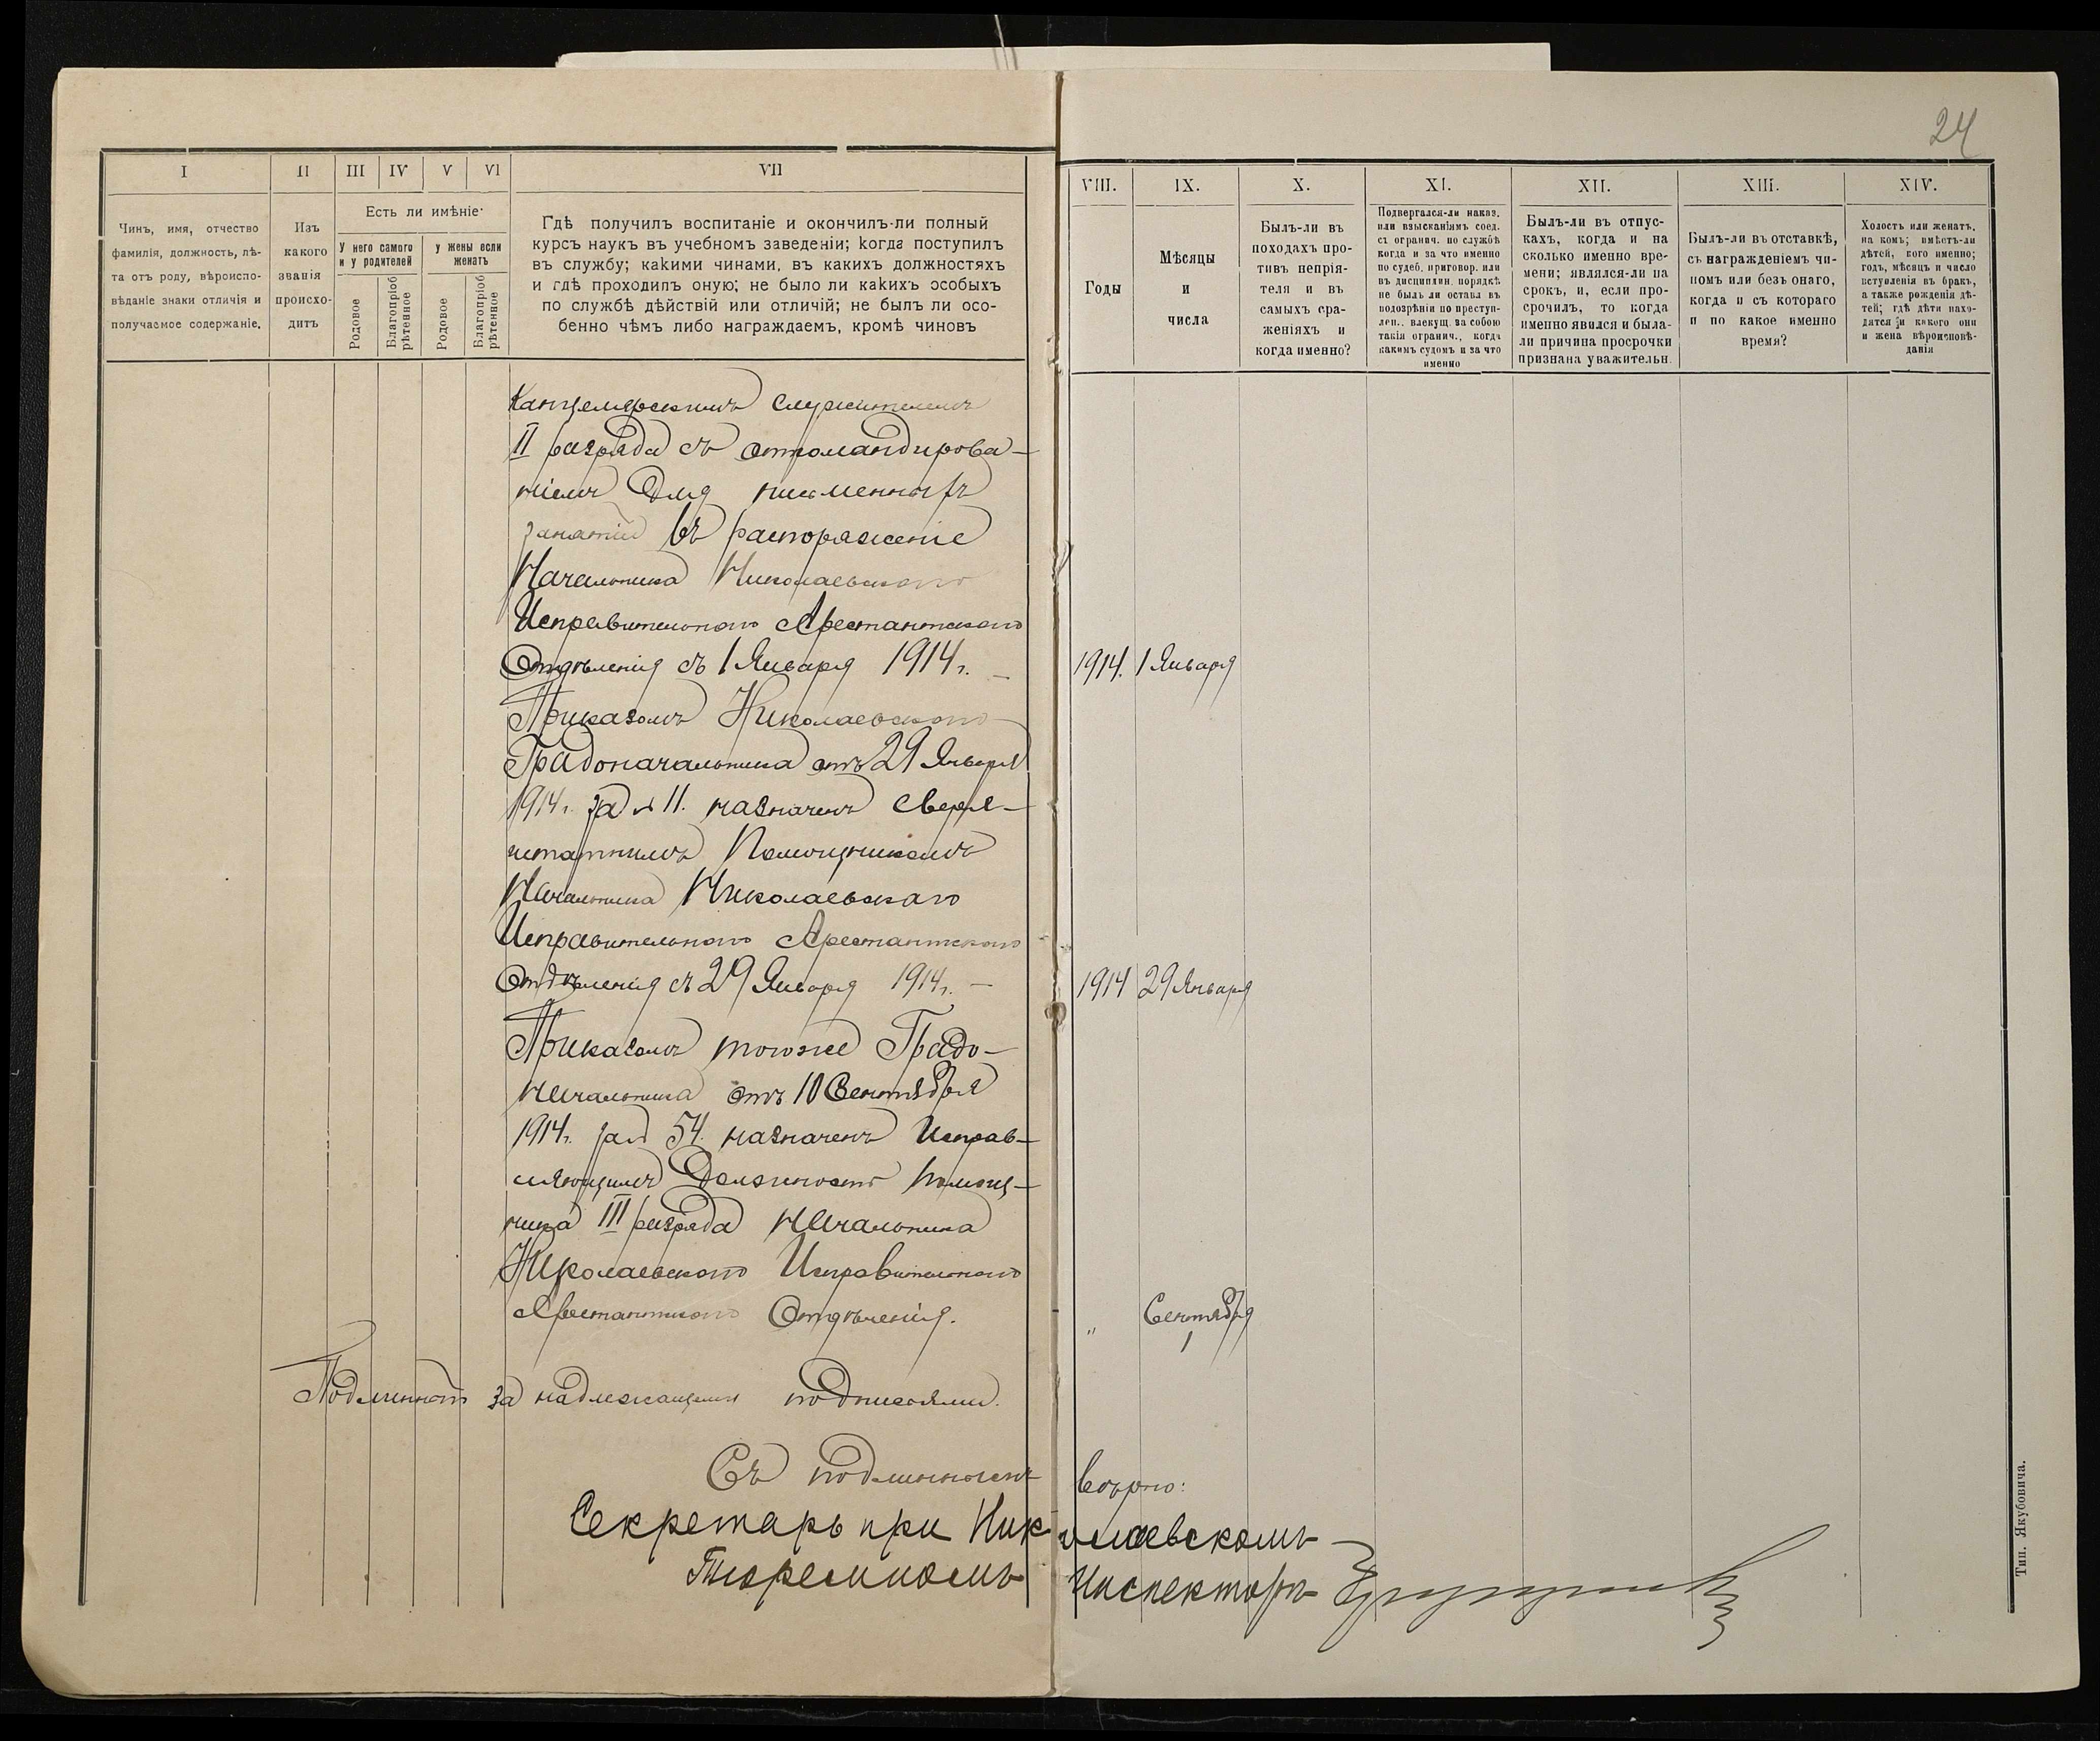 24
I II III IV V VI VII
VIII. IX. X. XI. XII. XIII. XIV.
Чинъ, имя, отчество
фамилія, должность, лѣ-
та отъ роду, вѣроиспо-
вѣданіе знаки отличія и
получаемое содержаніе.
Изъ
какого
званія
происхо-
дитъ
Есть ли имѣніе
У него самого
и у родителей
у жены если
женатъ
Родовое
Благопріоб
рѣтенное
Родовое
Благопріоб
рѣтенное
Гдѣ получилъ воспитаніе и окончилъ-ли полный
курсъ наукъ въ учебномъ заведеніи; когда поступилъ
въ службу; какими чинами, въ какихъ должностяхъ
и гдѣ проходилъ оную; не было ли какихъ особыхъ
по службѣ дѣйствій или отличій; не былъ ли осо-
бенно чѣмъ либо награждаемъ, кромѣ чиновъ
Годы
Мѣсяцы
и
числа
Былъ-ли въ
походахъ про-
тивъ непрія-
теля и въ
самыхъ сра-
женіяхъ и
когда именно?
Подвергался-ли наказ.
или взысканіямъ соед.
съ огранич. по службѣ
когда и за что именно
по судеб. приговор. или
въ дисциплин. порядкѣ
не былъ ли оставл въ
подозрѣніи по преступ-
лен., влекущ. за собою
такія огранич., когда
какимъ судомъ и за что
именно
Былъ-ли въ отпус-
кахъ, когда и на
сколько именно вре-
мени; являлся-ли на
срокъ, и, если про-
срочилъ, то когда
именно явился и была-
ли причина просрочки
признана уважительн.
Былъ-ли въ отставкѣ,
съ награжденіемъ чи-
номъ или безъ онаго,
когда и съ котораго
и по какое именно
время?
Холостъ или женатъ,
на комъ; имѣетъ-ли
дѣтей, кого именно;
годъ, мѣсяцъ и число
вступленія въ бракъ,
а также рожденія дѣ-
тей; гдѣ дѣти нахо-
дятся и какого они
и жена вѣроисповѣ-
данія
Канцелярскимъ служителемъ
II разряда съ откомандирова-
ніемъ для письменныхъ
занятій въ распоряженіе
Начальника Николаевскаго
Исправительнаго Арестантскаго
Отдѣленія съ 1 Января 1914 г. 1914. 1 Января
Приказомъ Николаевскаго
Градоначальника отъ 29 Января
1914 г. за № 11. назначенъ сверх-
штатнымъ Помощникомъ
Начальника Николаевскаго
Исправительнаго Арестантскаго
Отдѣленія съ 29 Января 1914 г. 1914 29 Января
Приказомъ тогоже Градо-
начальника отъ 10 Сентября
1914 г. за № 54. назначенъ Исправ-
ляющимъ Должность помощ-
ника III разряда Начальника
Николаевскаго Исправительнаго
Арестантскаго Отдѣленія. " Сентября
1
Подлинный за надлежащими подписями.
Съ подлиннымъ вѣрно:
Секретарь при Николаевскомъ
Тюремномъ Инспекторѣ
Тип. Якубовича.